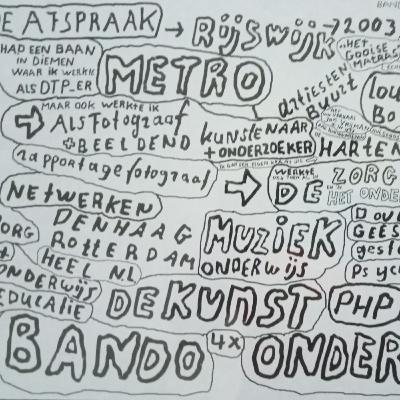 DE AFSPRAAK → RijSWijK → 2003
HAD EEN BAAN
IN DIEMEN
WAAR iK WERKTE
ALS DTP-ER
METRO
"HET
GOOISE
MATRAS"
artiesten
BUURT
lou
Bo
MAAR OOK WERKTE iK
ALS Fotograaf
+ BEELDEND
KUNSTENAAR
+ ONDERZOEKER
HARTEN
rapportagefotograaf
WERKTE
DE
ZORG
HET ONDER
NETWERKEN
DENHAAG
ROTTERDAM
HEEL NL
MUZiEK
ONDERWijS
DOVE
GEES
geste
Psyc
ZORG
+
ONDERWijS
EDUCATIE
DE KUNST
PHP
BANDO
4x
ONDER